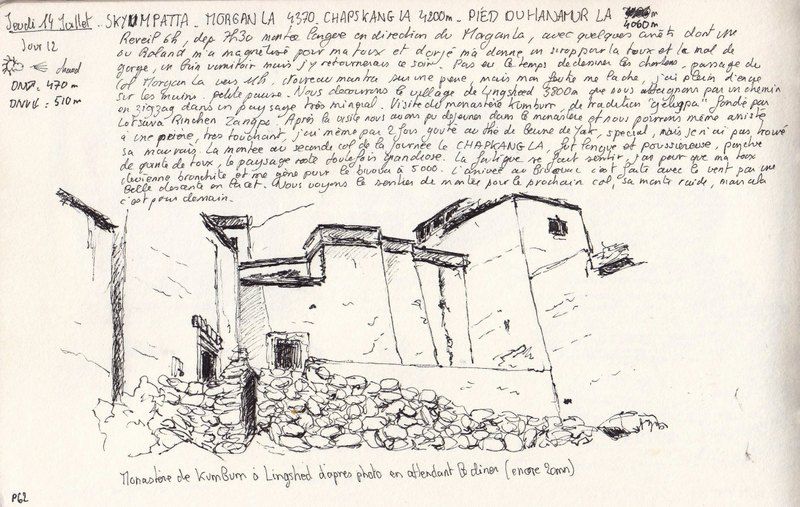 Jeudi 14 Juillet. SKYUMPATTA. MORGAN LA 4370. CHAPSKANG LA 4200m. PIED DU HANAMUR LA 4060m
Jour 12
chaud
DNP: 470 m
DNVG: 510m
Reveil 6h, dep 7h30 montée longue en direction du Margan la, avec quelques arrêts dont une
ou Roland m'a magnétisé pour ma toux et dorjé m'a donné un sirop pour la toux et le mal de
gorge, un brin vomitoir mais j'y retournerais ce soir. Pas eu le temps de dessiner les chortens, passage du
col Morgan La vers 11h. Nouveau mantra sur une pierre, mais mon feutre me lache, j'ai plein d'encre
sur les mains. petite pause. Nous découvrons le village de Lingshed 3800m que nous atteignons par un chemin
en zigzag dans un paysage très minéral. Visite du monastère Kumbum, de tradition "gelugpa" fondé par
Lotsava Rinchen Zangpo. Après la visite nous avons pu dejeuner dans le monastère et nous pouvons même assisté
à une prière, très touchant, j'ai même par 2 fois gouté au thé de beurre de Yak, spécial, mais je n'ai pas trouvé
sa mauvais. La montée au second col de la journée le CHAPKANG LA, fut longue et poussiereuse, proche
de quinte de toux, le paysage reste toutefois grandiose. La fatigue se fait sentir, j'ai peur que ma toux
devienne bronchite et me gène pour le bivouac à 5000. L'arrivée au Bivouac c'est faite avec le vent par une
belle descente en lacet. Nous voyons le sentier de montée pour le prochain col, sa monte raide, mais cela
c'est pour demain.
Monastère de KumBum à Lingshed d'après photo en attendant le diner (encore 20mn)
P62